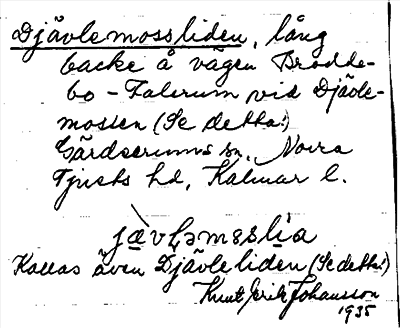 Djävlemossliden, lång
backe å vägen Brodde-
bo - Falerum vid Djävle-
mossen (Se detta!)
Gärdserums sn, Norra
Tjusts hd, Kalmar l.
Kallas även Djävleliden (Se detta!)
Knut Erik Johansson
1935